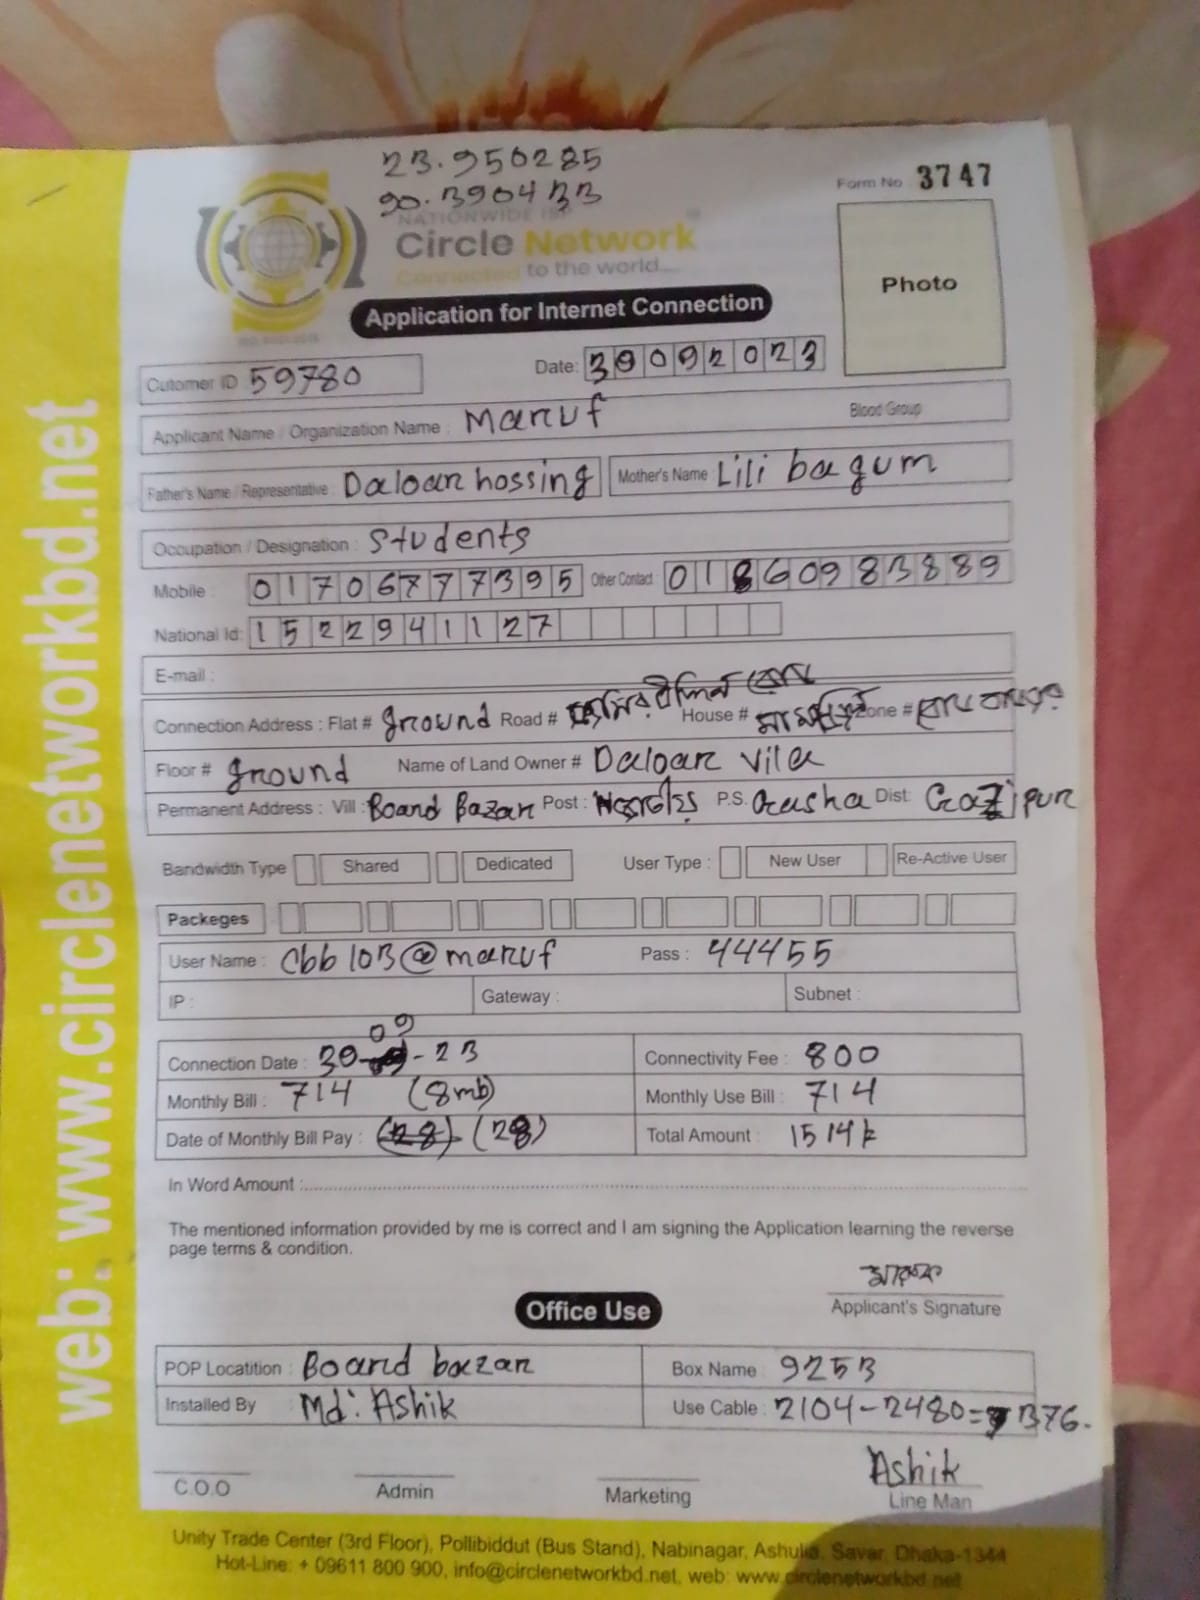 23.950285
90.390433
Form No 3747
NATIONWIDE ISP
Circle Network
Connected to the world....
Photo
Application for Internet Connection
Cutomer ID 59780
Date: 30092023
Applicant Name / Organization Name : Maruf
Blood Group
Father's Name / Representative : Daloar hossing Mother's Name : Lili bagum
Occupation / Designation : Students
Mobile : 01706777395 Other Contact 01860983889
National Id: 1522941127
E-mail :
Connection Address : Flat # ground Road # House # Zone #
Floor # ground Name of Land Owner # Daloar vila
Permanent Address : Vill : Board Bazar Post : P.S. Gasha Dist: Gazipur
Bandwidth Type Shared Dedicated User Type : New User Re-Active User
Packeges
User Name : Cbb103@maruf Pass : 44455
IP : Gateway : Subnet :
09
Connection Date : 30- -23 Connectivity Fee : 800
Monthly Bill : 714 (8mb) Monthly Use Bill : 714
Date of Monthly Bill Pay : (28) (28) Total Amount : 1514
In Word Amount :
The mentioned information provided by me is correct and I am signing the Application learning the reverse
page terms & condition.
মারুফ
Applicant's Signature
Office Use
POP Locatition : Board bazar Box Name : 9253
Installed By Md: Ashik Use Cable : 2104-2480= 376.
Ashik
C.O.O Admin Marketing Line Man
Unity Trade Center (3rd Floor), Pollibiddut (Bus Stand), Nabinagar, Ashulia, Savar, Dhaka-1344
Hot-Line: + 09611 800 900, info@circlenetworkbd.net, web: www.circlenetworkbd.net
web: www.circlenetworkbd.net